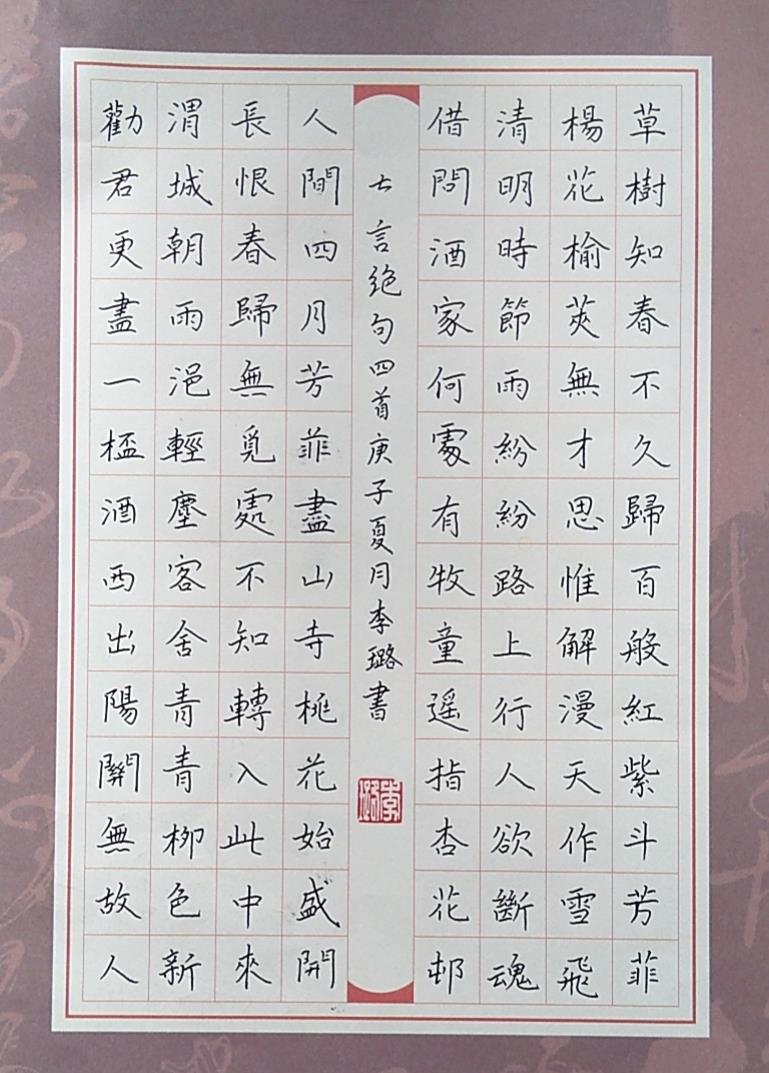 草樹知春不久歸百般紅紫斗芳菲
楊花榆莢無才思惟解漫天作雪飛
清明時節雨紛紛路上行人欲斷魂
借問酒家何處有牧童遥指杏花邨
七言絶句四首庚子夏月李璐書
李璐
人間四月芳菲盡山寺桃花始盛開
長恨春歸無覓處不知轉入此中來
渭城朝雨浥輕塵客舍青青柳色新
勸君更盡一桮酒西出陽關無故人